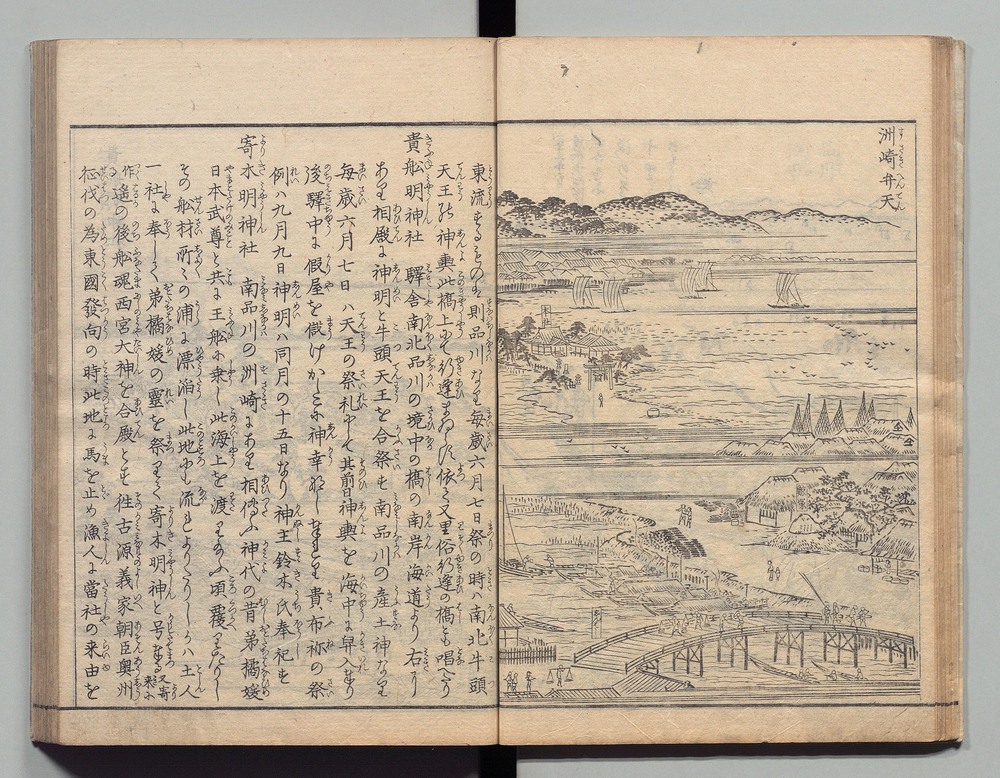 洲崎弁天
東流するものは則品川なり毎歳六月七日祭の時ハ南北牛頭
天王の神輿此橋上にて行逢まゐらす依之又里俗行逢の橋とも唱へり
貴舩明神社 驛舎南北品川の境中の橋の南岸海道より右にり
あり相殿に神明と牛頭天王を合祭す南品川の産土神なり
毎歳六月七日ハ天王の祭礼にて其前日神輿を海中に舁入まり
後驛中に假屋を儲けかしこに神幸なし奉る貴布祢の祭
例ハ九月九日神明ハ同月の十五日なり神主鈴木氏奉祀す
寄木明神社 南品川の洲崎にあり相傳ふ神代の昔弟橘媛
日本武尊と共に王船に乗し此海上を渡り給ふ頃覆りしか
その舩材所々の浦に漂泊し此地にも流れよりしかハ土人
一社に奉して弟橘媛の靈を祭りて寄木明神と号 又寄来に
作る 遥の後舩魂西宮大神を合殿とす往古源義家朝臣奥州
征伐の為東國發向の時此地に馬を止め漁人に當社の来由を